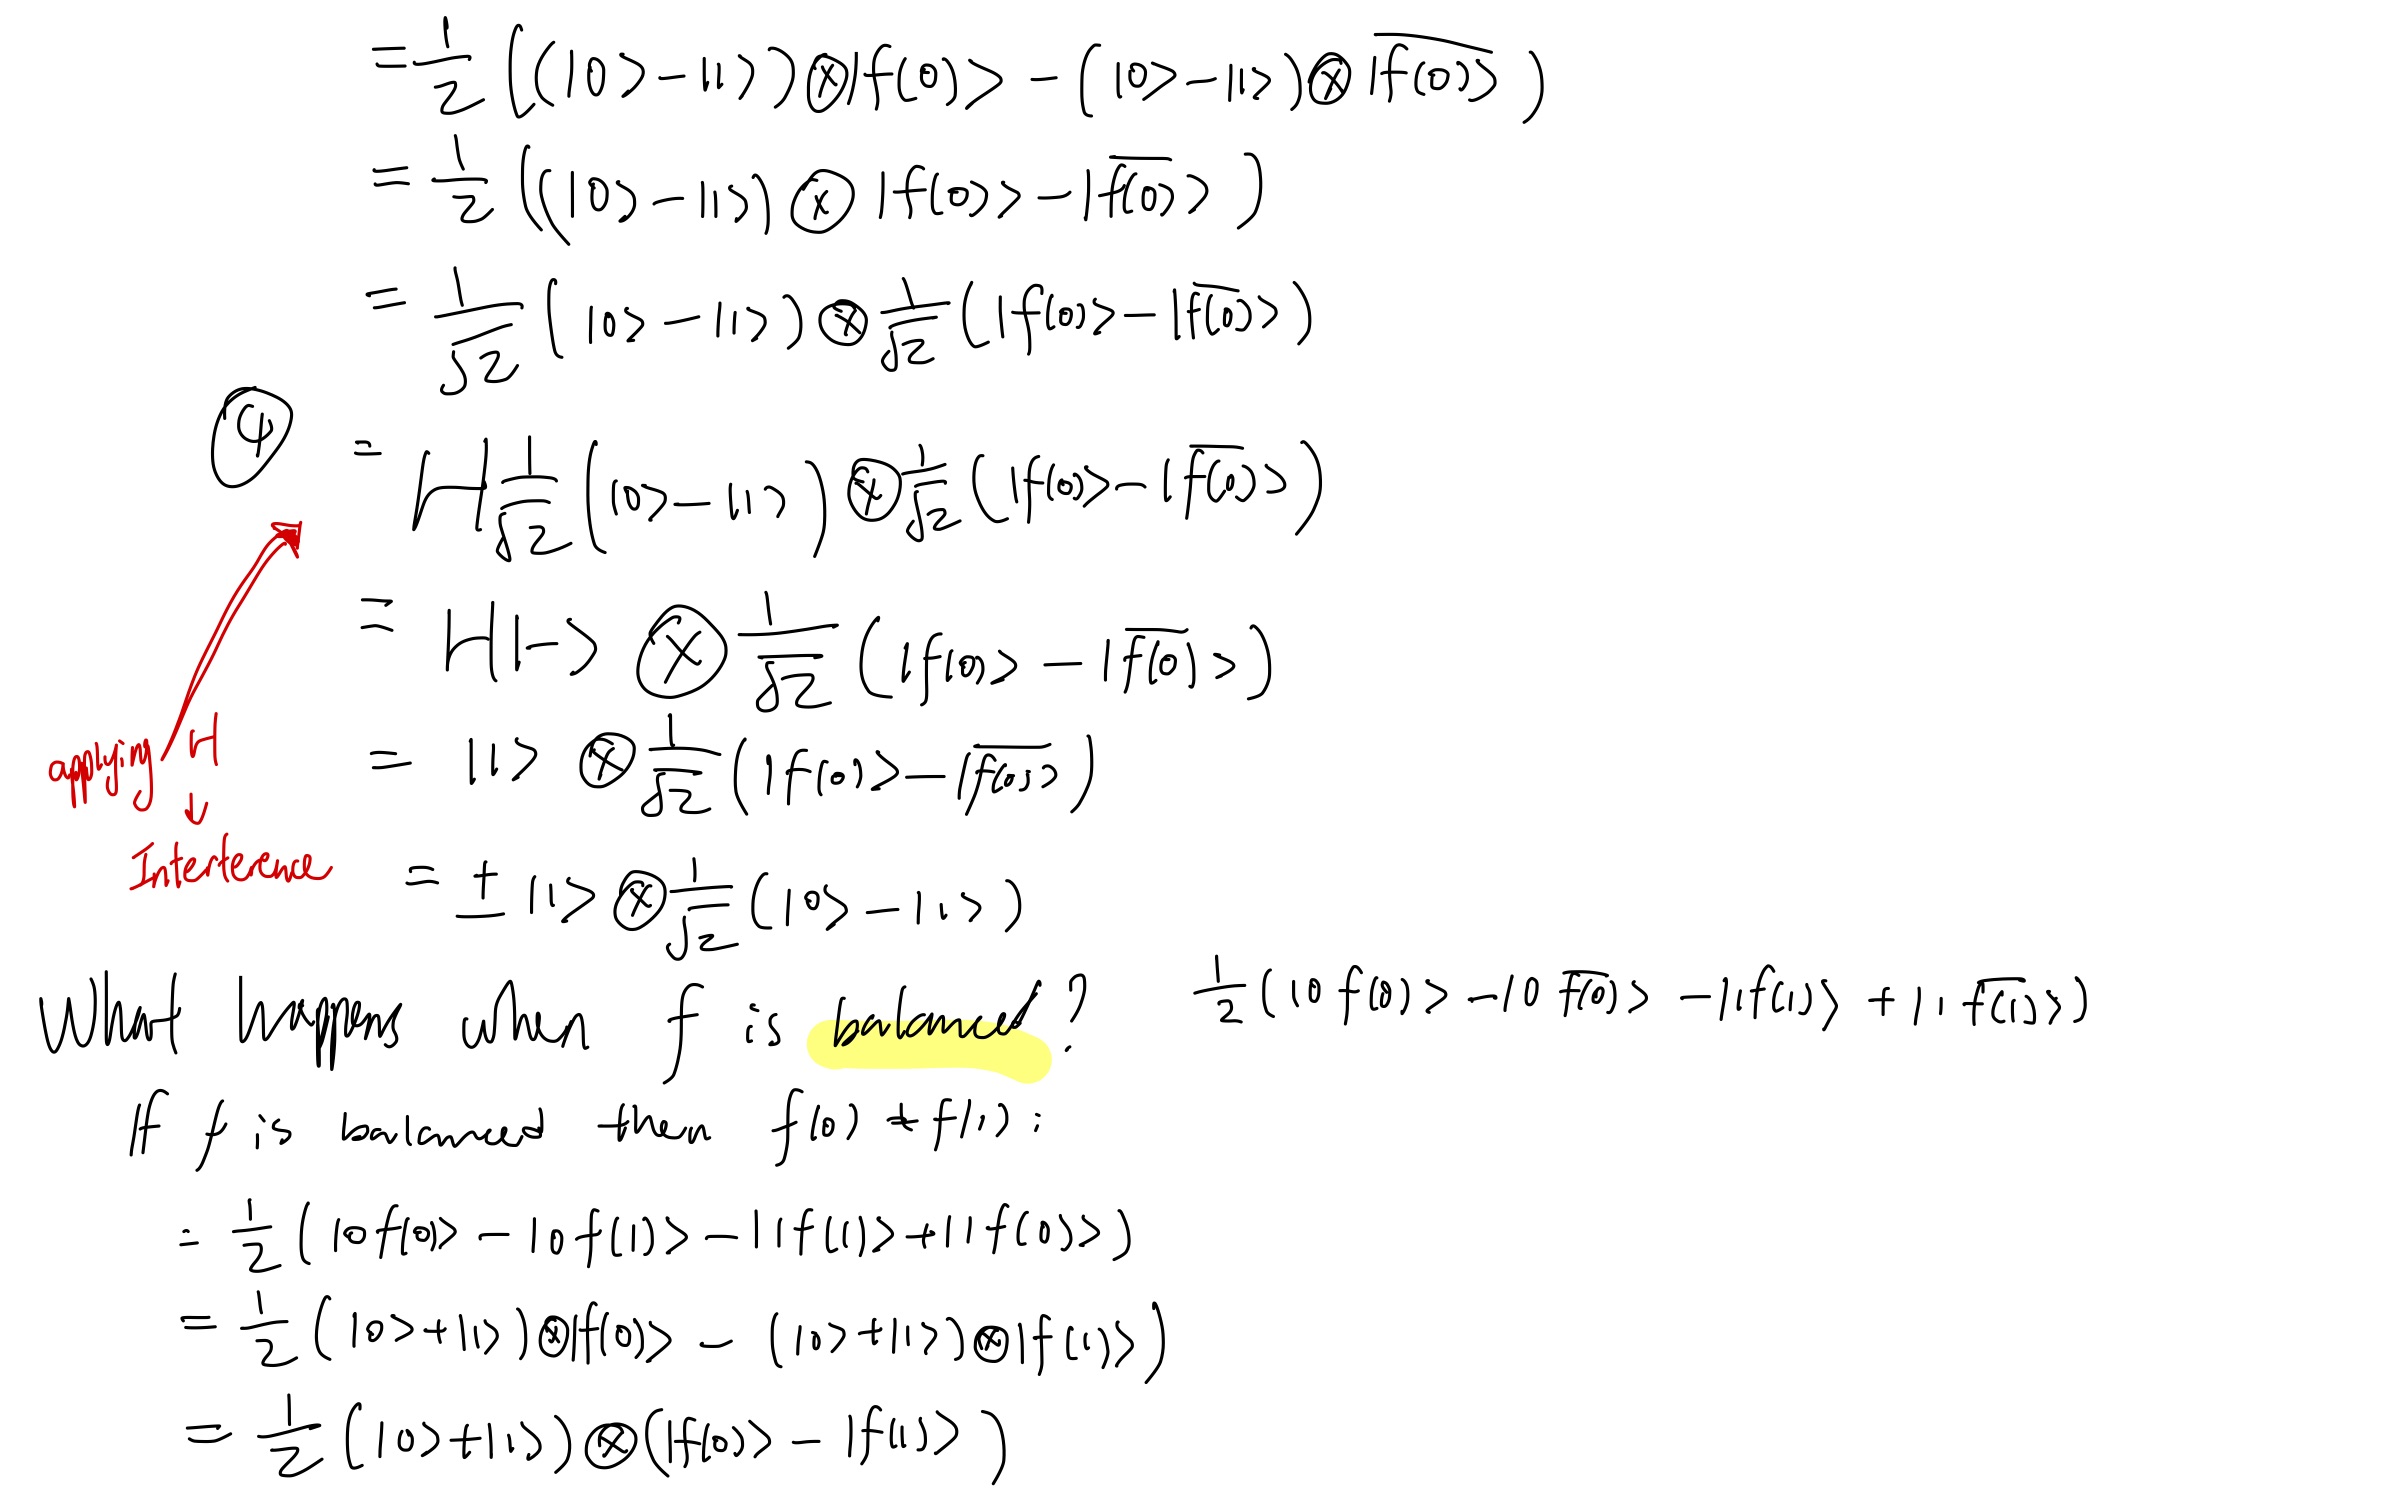 = 1/2 ((|0> - |1>) ⊗ |f(0)> - (|0> - |1>) ⊗ |f̅(̅0̅)̅>)
= 1/2 ((|0> - |1>) ⊗ |f(0)> - |f̅(̅0̅)̅>)
= 1/√2 (|0> - |1>) ⊗ 1/√2 (|f(0)> - |f̅(̅0̅)̅>)
④ = H 1/√2 (|0> - |1>) ⊗ 1/√2 (|f(0)> - |f̅(̅0̅)̅>)
= H|-> ⊗ 1/√2 (|f(0)> - |f̅(̅0̅)̅>)
applying H
= |1> ⊗ 1/√2 (|f(0)> - |f̅(̅0̅)̅>)
↓
Interference
= ± |1> ⊗ 1/√2 (|0> - |1>)
What happens when f is balanced?
1/2 (|0 f(0)> - |0 f̅(̅0̅)̅> - |1 f(1)> + |1 f̅(̅1̅)̅>)
If f is balanced then f(0) ≠ f(1):
= 1/2 (|0 f(0)> - |0 f(1)> - |1 f(1)> + |1 f(0)>)
= 1/2 (|0> + |1>) ⊗ |f(0)> - (|0> + |1>) ⊗ |f(1)>)
= 1/2 (|0> + |1>) ⊗ (|f(0)> - |f(1)>)